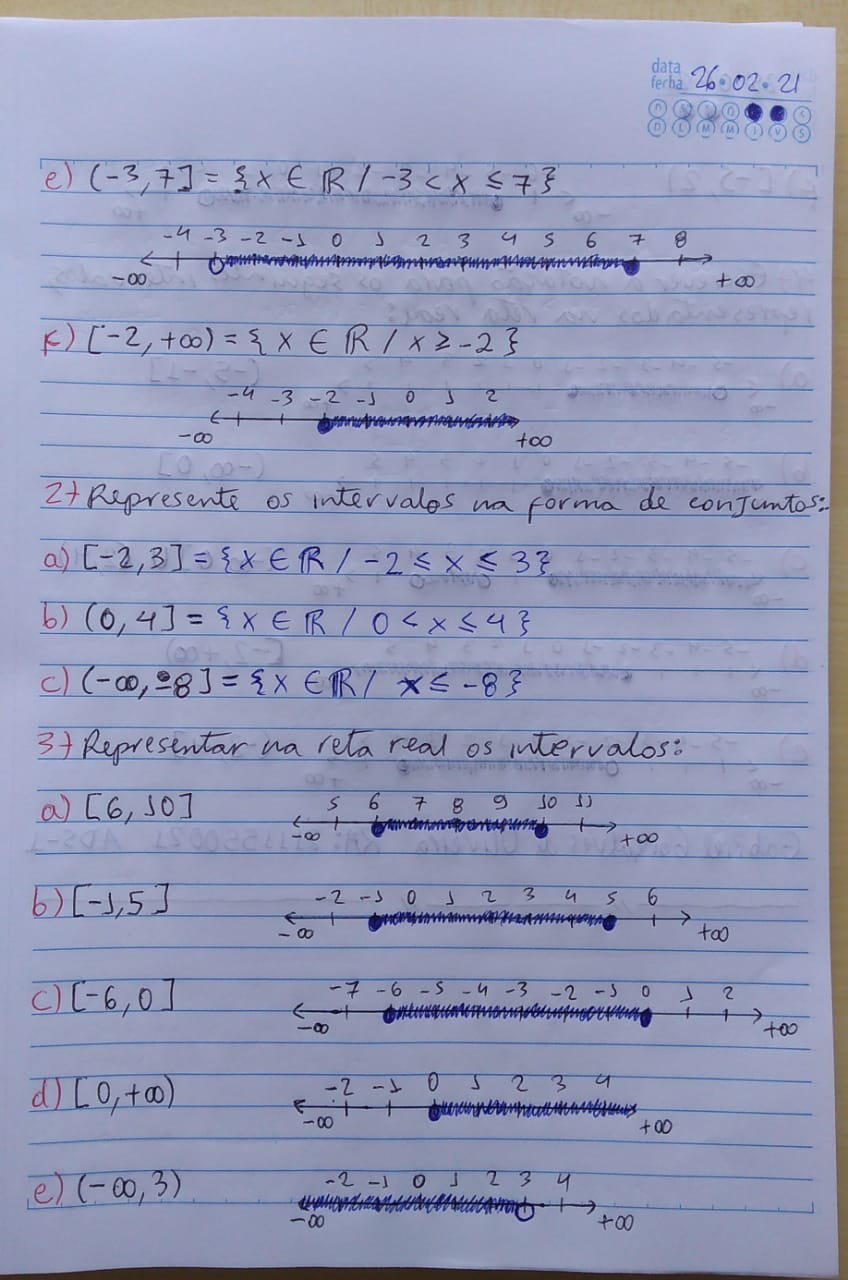 data
fecha 26.02.21
D S T Q Q S S
D L M M J V S
e) (-3,7] = {x ∈ ℝ / -3 < x ≤ 7}
-4 -3 -2 -1 0 1 2 3 4 5 6 7 8
-∞ +∞
f) [-2,+∞) = {x ∈ ℝ / x ≥ -2}
-4 -3 -2 -1 0 1 2
-∞ +∞
2) Represente os intervalos na forma de conjuntos:
a) [-2,3] = {x ∈ ℝ / -2 ≤ x ≤ 3}
b) (0,4] = {x ∈ ℝ / 0 < x ≤ 4}
c) (-∞,-8] = {x ∈ ℝ / x ≤ -8}
3) Representar na reta real os intervalos:
a) [6,10] 5 6 7 8 9 10 11
-∞ +∞
b) [-1,5] -2 -1 0 1 2 3 4 5 6
-∞ +∞
c) [-6,0] -7 -6 -5 -4 -3 -2 -1 0 1 2
-∞ +∞
d) [0,+∞) -2 -1 0 1 2 3 4
-∞ +∞
e) (-∞,3) -2 -1 0 1 2 3 4
-∞ +∞